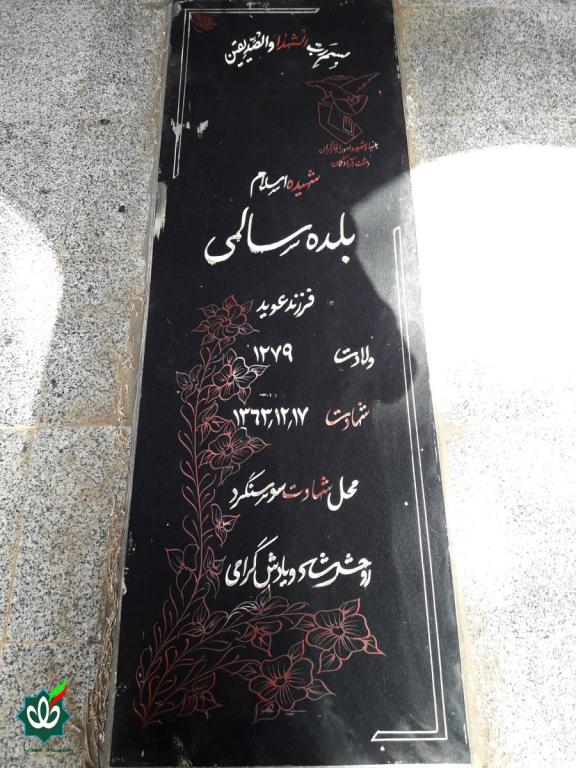 بسم رب الشهدا والصدیقین
بنیاد شهید و امور ایثارگران
دشت آزادگان
شهیده اسلام
بلده سالمی
فرزند عوید
ولادت ۱۲۷۹
شهادت ۱۳۶۳,۱۲,۱۷
محل شهادت سوسنگرد
روحش شاد و یادش گرامی